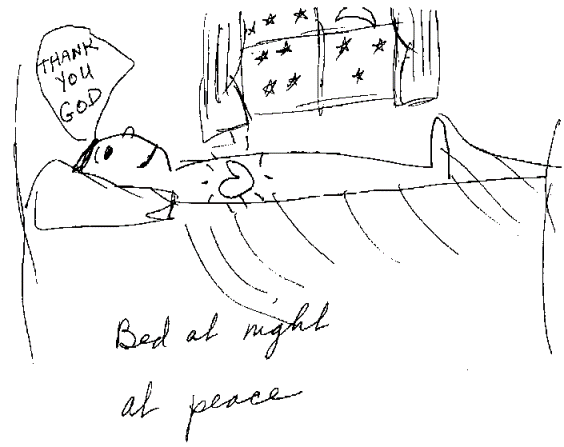 THANK
YOU
GOD
Bed at night
at peace